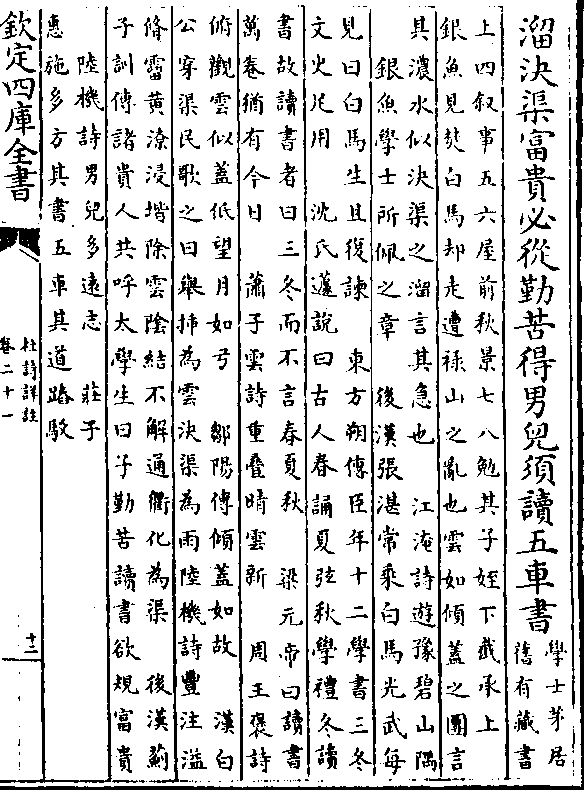 溜決渠富貴必從勤苦得男兒須讀五車書 學士茅居
舊有藏書
上四叙事五六屋前秋景七八勉其子姪下截承上
銀魚見焚白馬却走遭祿山之亂也雲如傾蓋之團言
其濃水似決渠之溜言其急也 江淹詩遊豫碧山隅
銀魚學士所佩之章 後漢張湛常乘白馬光武每
見曰白馬生且復諫 東方朔傳臣年十二學書三冬
文史足用 沈氏邇說曰古人春誦夏弦秋學禮冬讀
書故讀書者曰三冬而不言春夏秋 梁元帝曰讀書
萬卷猶有今日 蕭子雲詩重疊晴雲新 周王褒詩
俯觀雲似蓋低望月如弓 鄒陽傳傾蓋如故 漢白
公穿渠民歌之曰舉揷為雲決渠為雨陸機詩豐注溢
脩霤黃潦浸堦除雲陰結不解通衢化為渠 後漢薊
子訓傳諸貴人共呼太學生曰子勤苦讀書欲規富貴
陸機詩男兒多遠志 莊子
惠施多方其書五車其道踳駁
欽定四庫全書
杜詩詳註
卷二十一
十二